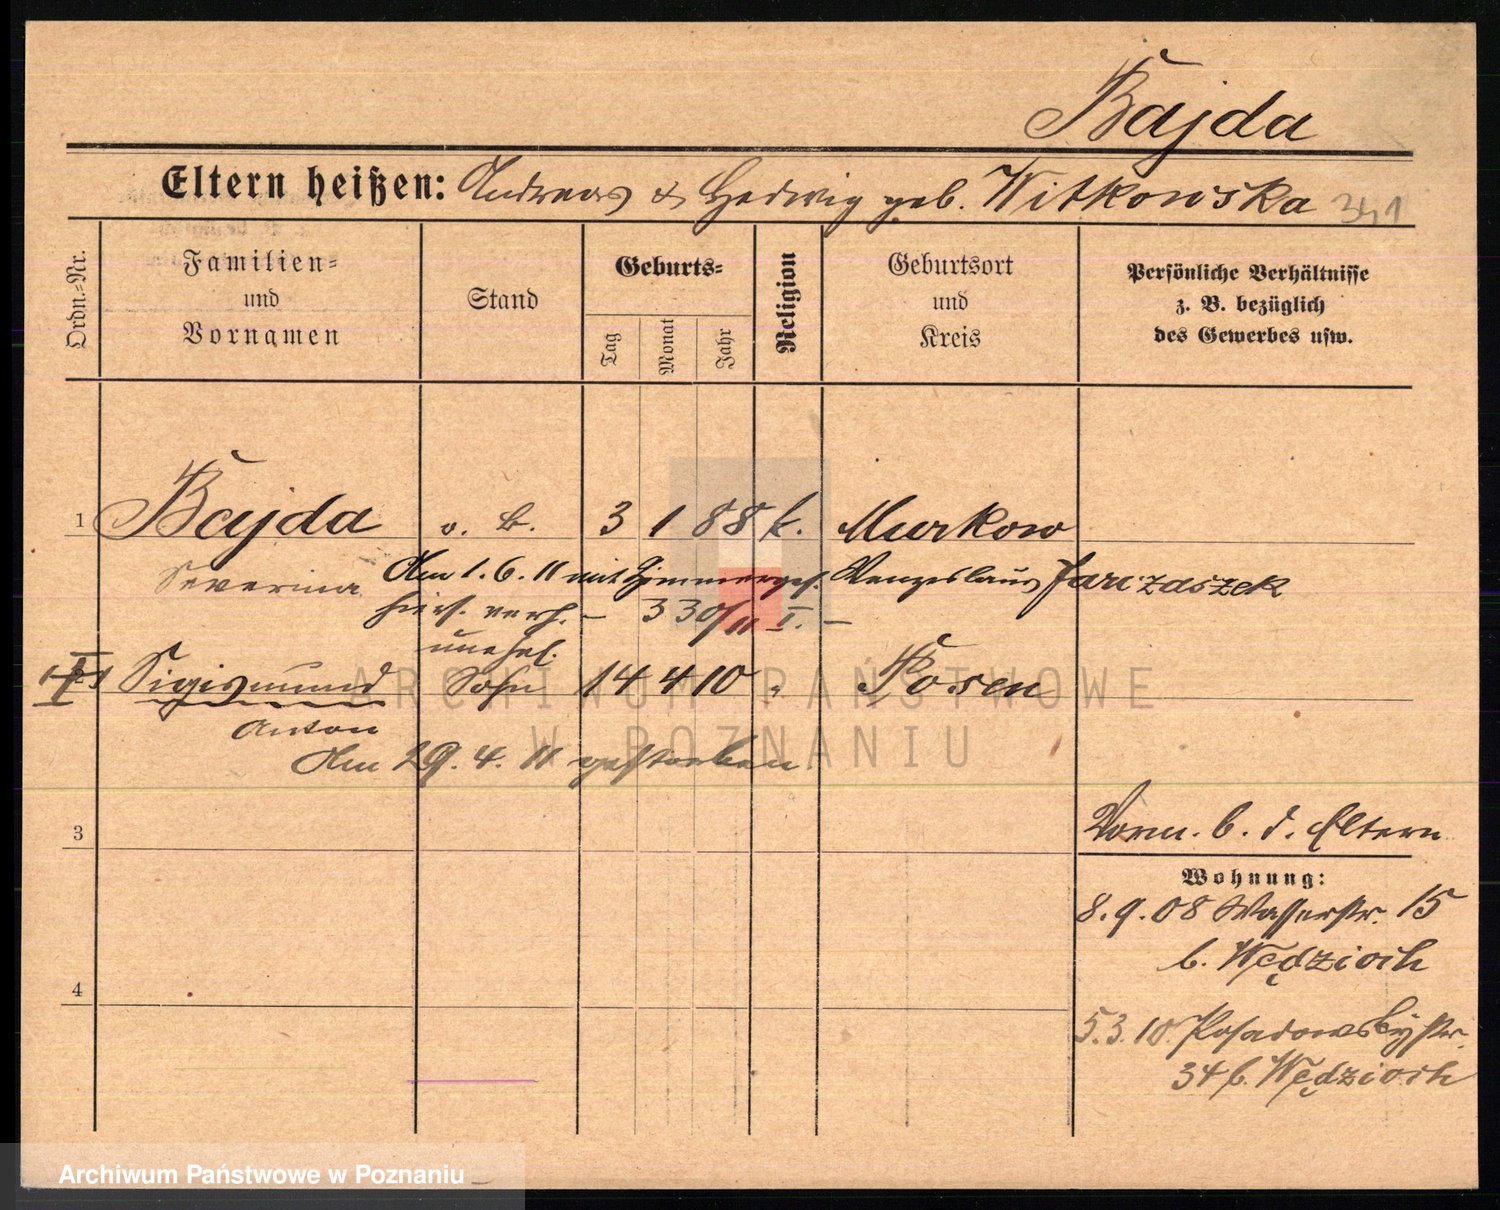 Bajda
Eltern heißen: Andreas & Hedwig geb. Witkowska 341
Ordn.-Nr.
Familien-
und
Vornamen
Stand
Geburts-
Tag
Monat
Jahr
Religion
Geburtsort
und
Kreis
Persönliche Verhältnisse
z. B. bezüglich
des Gewerbes usw.
1 Bajda o. B. 3 1 88 k. Murkow
Severina Am 1.6.11 mit Zimmerges. Wenzeslaus Jarczaszek
hiers. verh. – 330/11 I. –
unehel.
Sigismund Sohn 14 4 10 " Posen
Anton
Am 29.4.11 gestorben.
3
Vorm. b. d. Eltern
Wohnung:
8.9.08 Wasserstr. 15
b. Wędzioch
4
5.3.10. Posadowskystr.
34 b. Wędzioch
ARCHIWUM PAŃSTWOWE
W POZNANIU
Archiwum Państwowe w Poznaniu